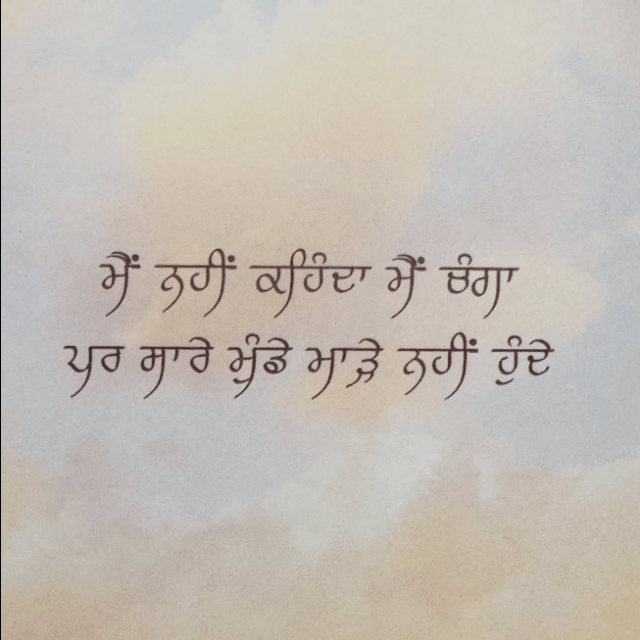 ਮੈਂ ਨਹੀਂ ਕਹਿੰਦਾ ਮੈਂ ਚੰਗਾ
ਪਰ ਸਾਰੇ ਮੁੰਡੇ ਮਾੜੇ ਨਹੀਂ ਹੁੰਦੇ